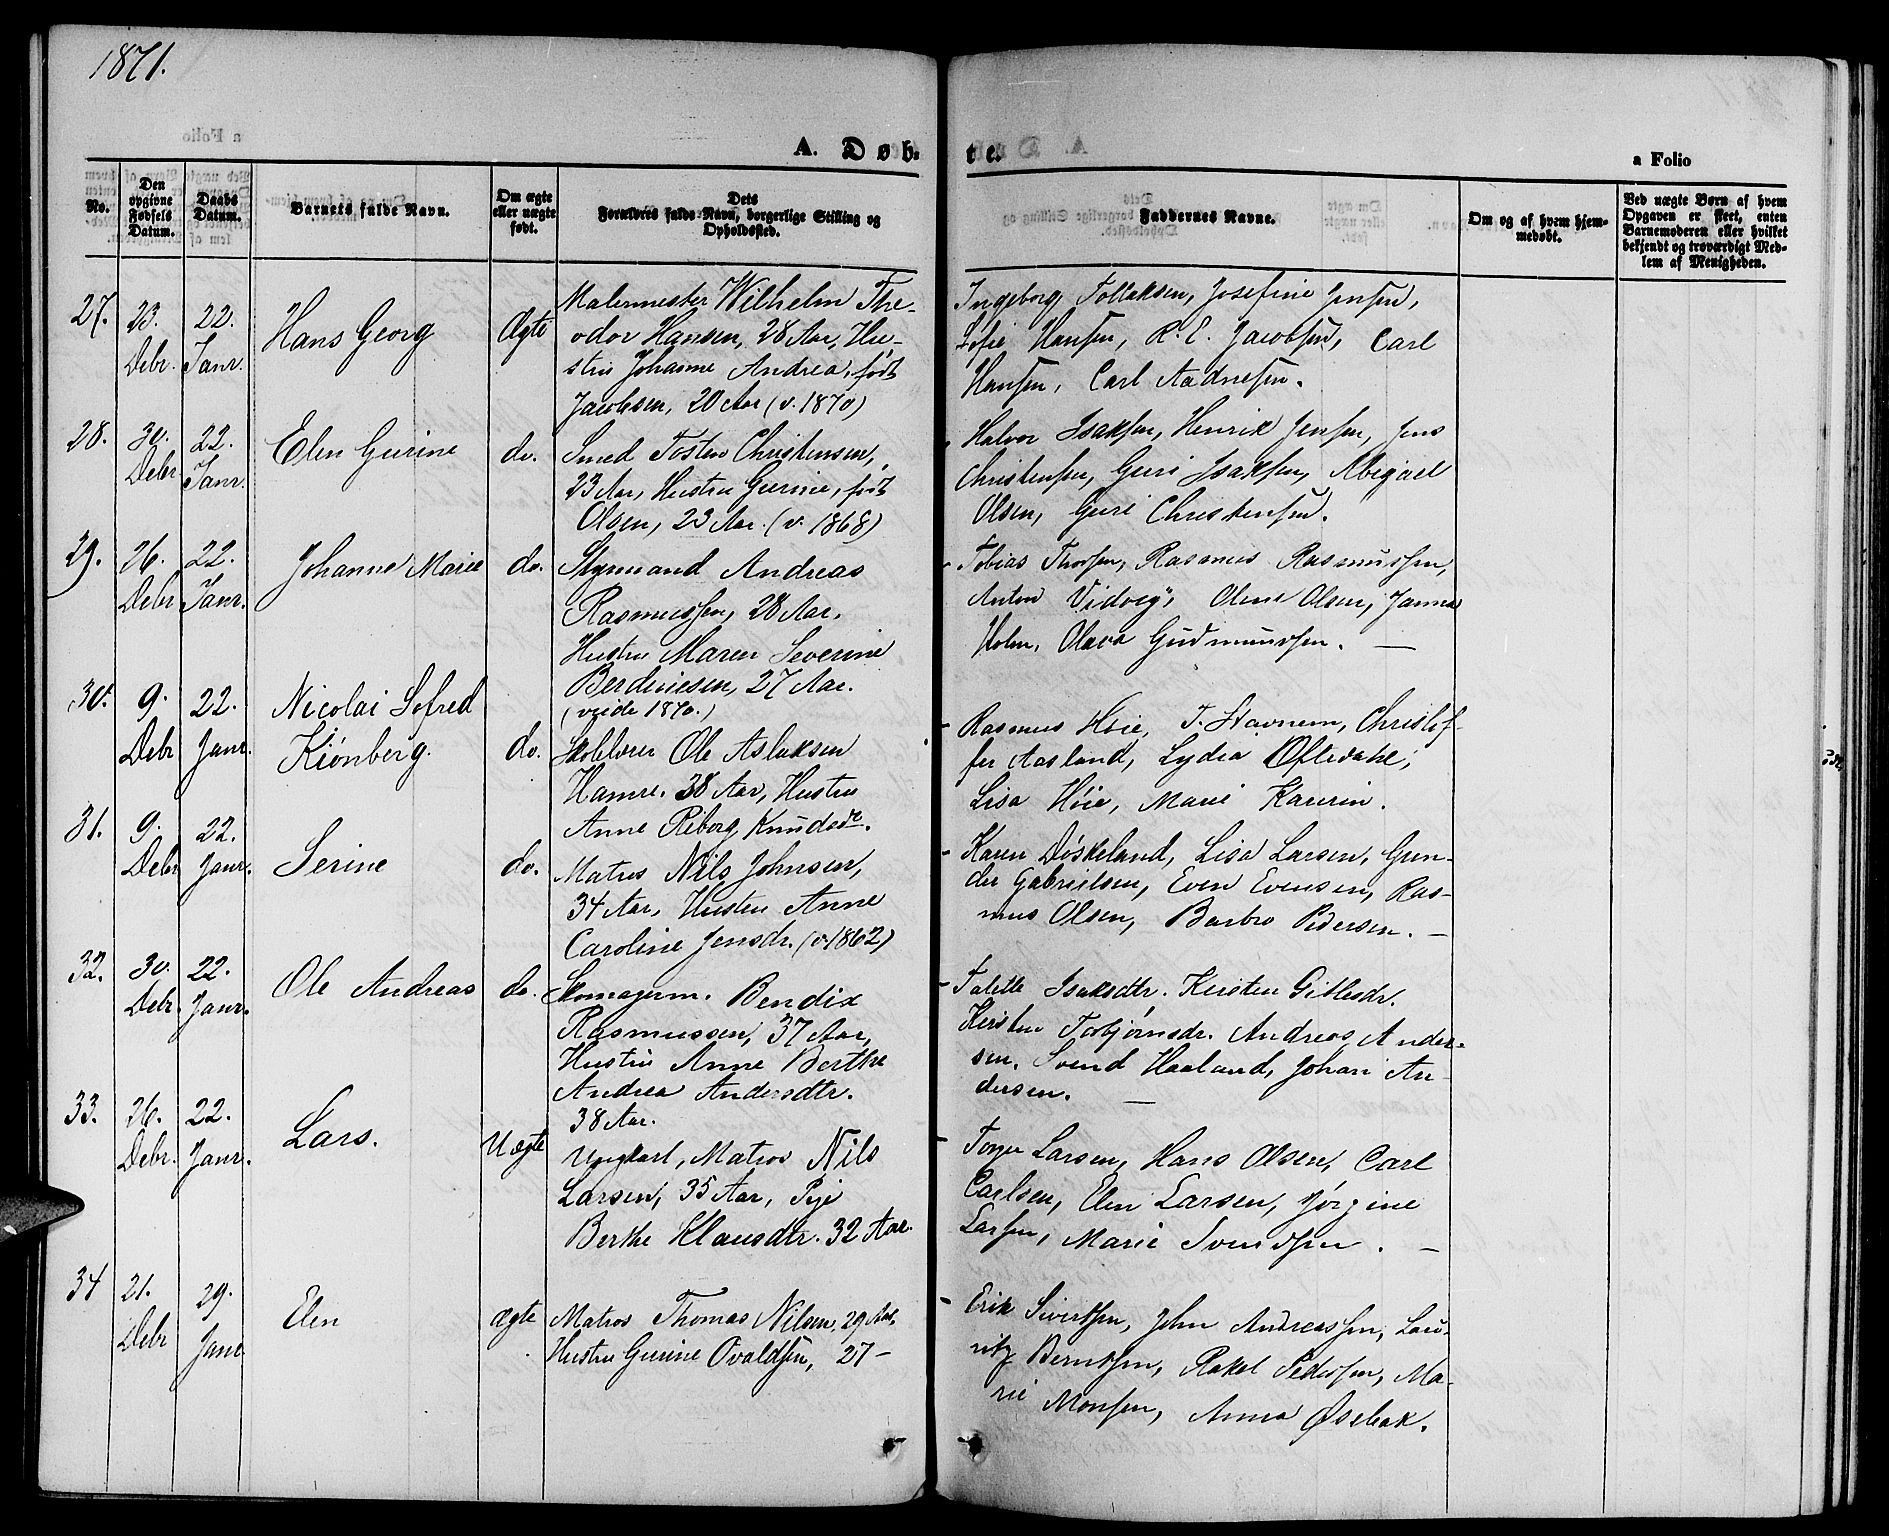 1871.
A. Døb-
te.
a Folio
No.
Den opgivne Fødsels Datum.
Daabs Datum.
Barnets fulde Navn.
Om ægte eller uægte født.
Dets Forældres fulde Navn, borgerlige Stilling og Opholdssted.
Faddernes Navne.
Om og af hvem hjemmedøbt.
Ved uægte Børn af hvem Opgaven er skeet, enten Barnemoderen eller hvilket bekjendt og troværdigt Medlem af Menigheden.
27.
23. Debr.
22. Janr.
Hans Georg
Ægte
Malermester Wilhelm The-
odor Hansen, 28 Aar, Hu-
stru Johanne Andrea, født
Jacobsen, 20 Aar (v. 1870)
Ingeborg Tollaksen, Josefine Jensen,
Sofie Hansen, R. E. Jacobsen, Carl
Hansen, Carl Aadnesen.
28.
30. Debr
22. Janr.
Elen Gurine
do.
Smed Tosten Christensen,
23 Aar, Hustru Gurine, født
Olsen, 23 Aar. (v. 1868)
Halvor Isaksen, Henrik Jensen, Jens
Christensen, Guri Isaksen, Abigael
Olsen, Guri Christensen.
29.
26. Debr
22. Janr.
Johanne Marie
do.
Styrmand Andreas
Rasmussen, 28 Aar.
Hustru Maren Severine
Berdinesen, 27 Aar.
(viede 1870.)
Tobias Thorsen, Rasmus Rasmussen,
Anton Vidvey, Oline Olsen, Janna
Holm, Olava Gudmundsen. —
30.
9. Debr
22. Janr.
Nicolai Sofred
Kiønberg.
do.
Skolelærer Ole Aslaksen
Hamre. 38 Aar, Hustru
Anne Reborg Knudsdr.
Rasmus Høie, T. Stavnem, Christof-
fer Aasland, Lydia Oftedahl,
Lisa Høie, Marie Karirin.
31.
9. Debr
22. Janr.
Serine
do.
Matros Nils Johnsen,
34 Aar, Hustru Anne
Caroline Jensdr. (v. 1862)
Karen Diskeland, Lisa Larsen, Gun-
der Gabrielsen, Even Evensen, Ras-
mus Olsen, Barbro Pedersen. —
32.
30. Debr.
22. Janr.
Ole Andreas
do.
Skomagerm. Bendix
Rasmussen, 37 Aar,
Hustru Anne Berthe
Andrea Andersdtr.
38 Aar.
Talette Isaksdtr. Kirsten Gitlesdr.
Kirsten Torbjørnsdr. Andreas Ander-
sen, Svend Haaland, Johan An-
dersen. —
33.
26. Debr.
22. Janr.
Lars.
Uægte
Ungkarl, Matros Nils
Larsen, 35 Aar, Pige
Berthe Klausdtr. 32 Aar.
Torger Larsen, Hans Olsen, Carl
Carlsen, Elen Larsen, Jørgine
Larsen, Marie Svendsen. —
34
21. Debr
29. Janr
Elen
ægte
Matros Thomas Nilsen, 29 Aar,
Hustru Gurine Ovaldsen, 27 —
Erik Sivertsen, John Andreassen, Lau-
ritz Berntsen, Rakel Pedersen, Ma-
rie Monsen, Anna Øsebak.